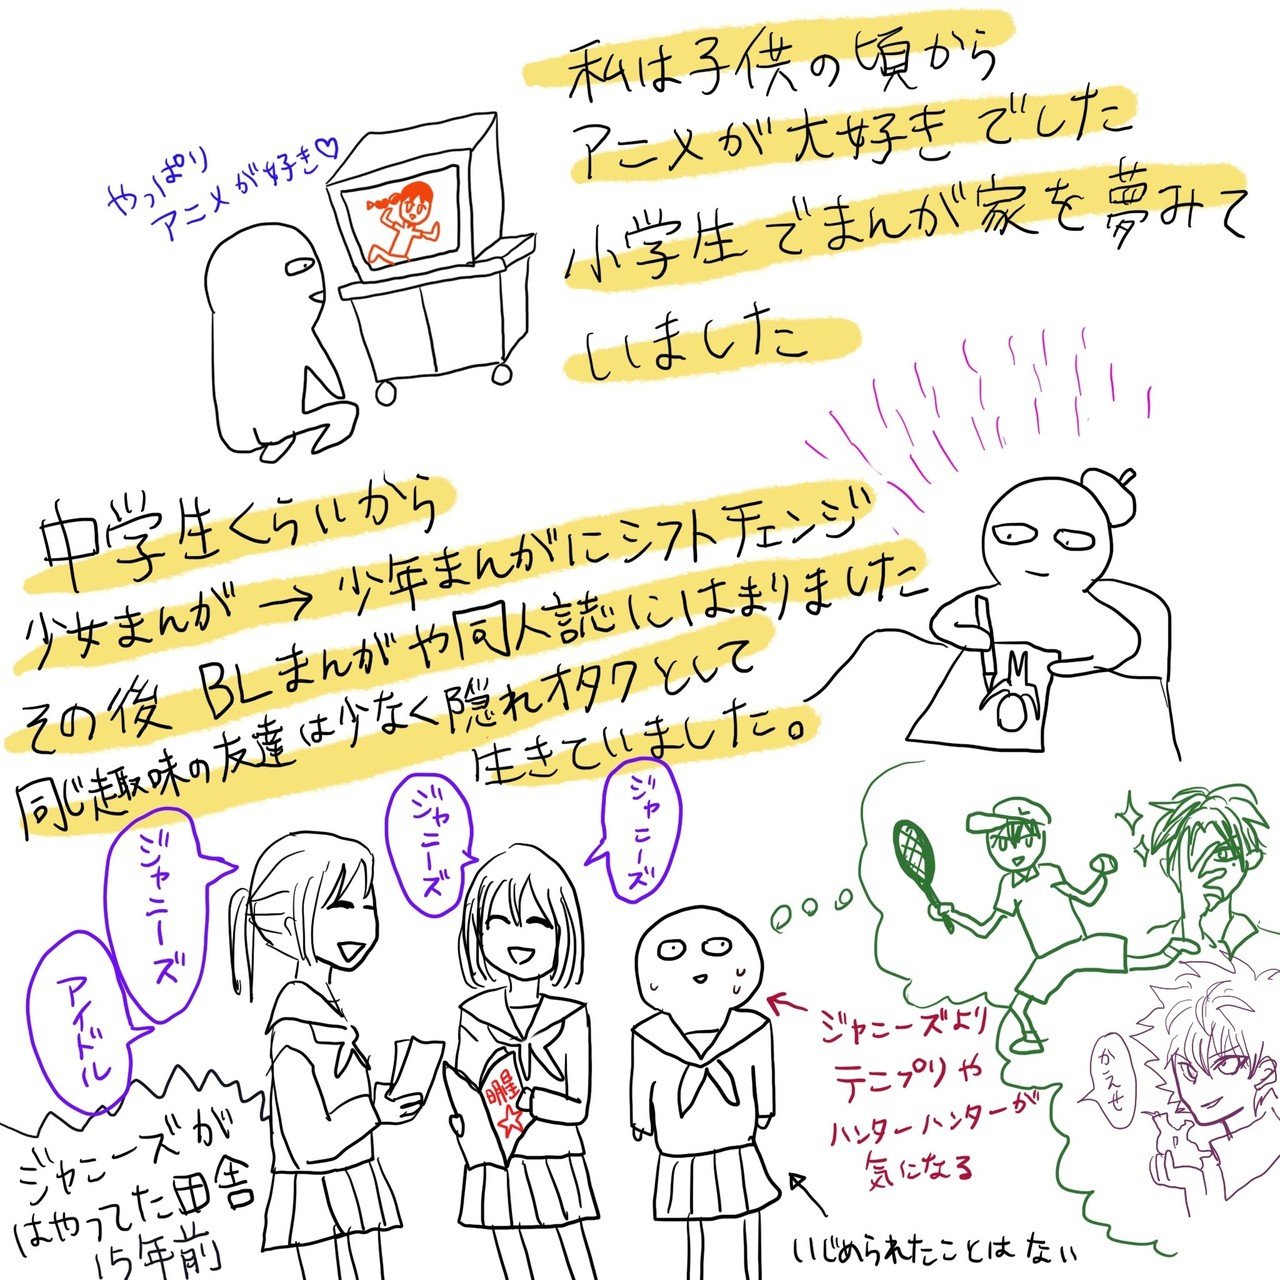 私は子供の頃から
アニメが大好きでした
小学生でまんが家を夢みて
いました
やっぱり
アニメが好き♡
中学生くらいから
少女まんが→少年まんがにシフトチェンジ
その後 BLまんがや同人誌にはまりました
同じ趣味の友達は少なく隠れオタクとして
生きていました。
ジャニーズ
ジャニーズ
ジャニーズ
アイドル
明星
☆
ジャニーズより
テニプリや
ハンターハンターが
気になる
かえせ
ジャニーズが
はやってた田舎
15年前
いじめられたことはない